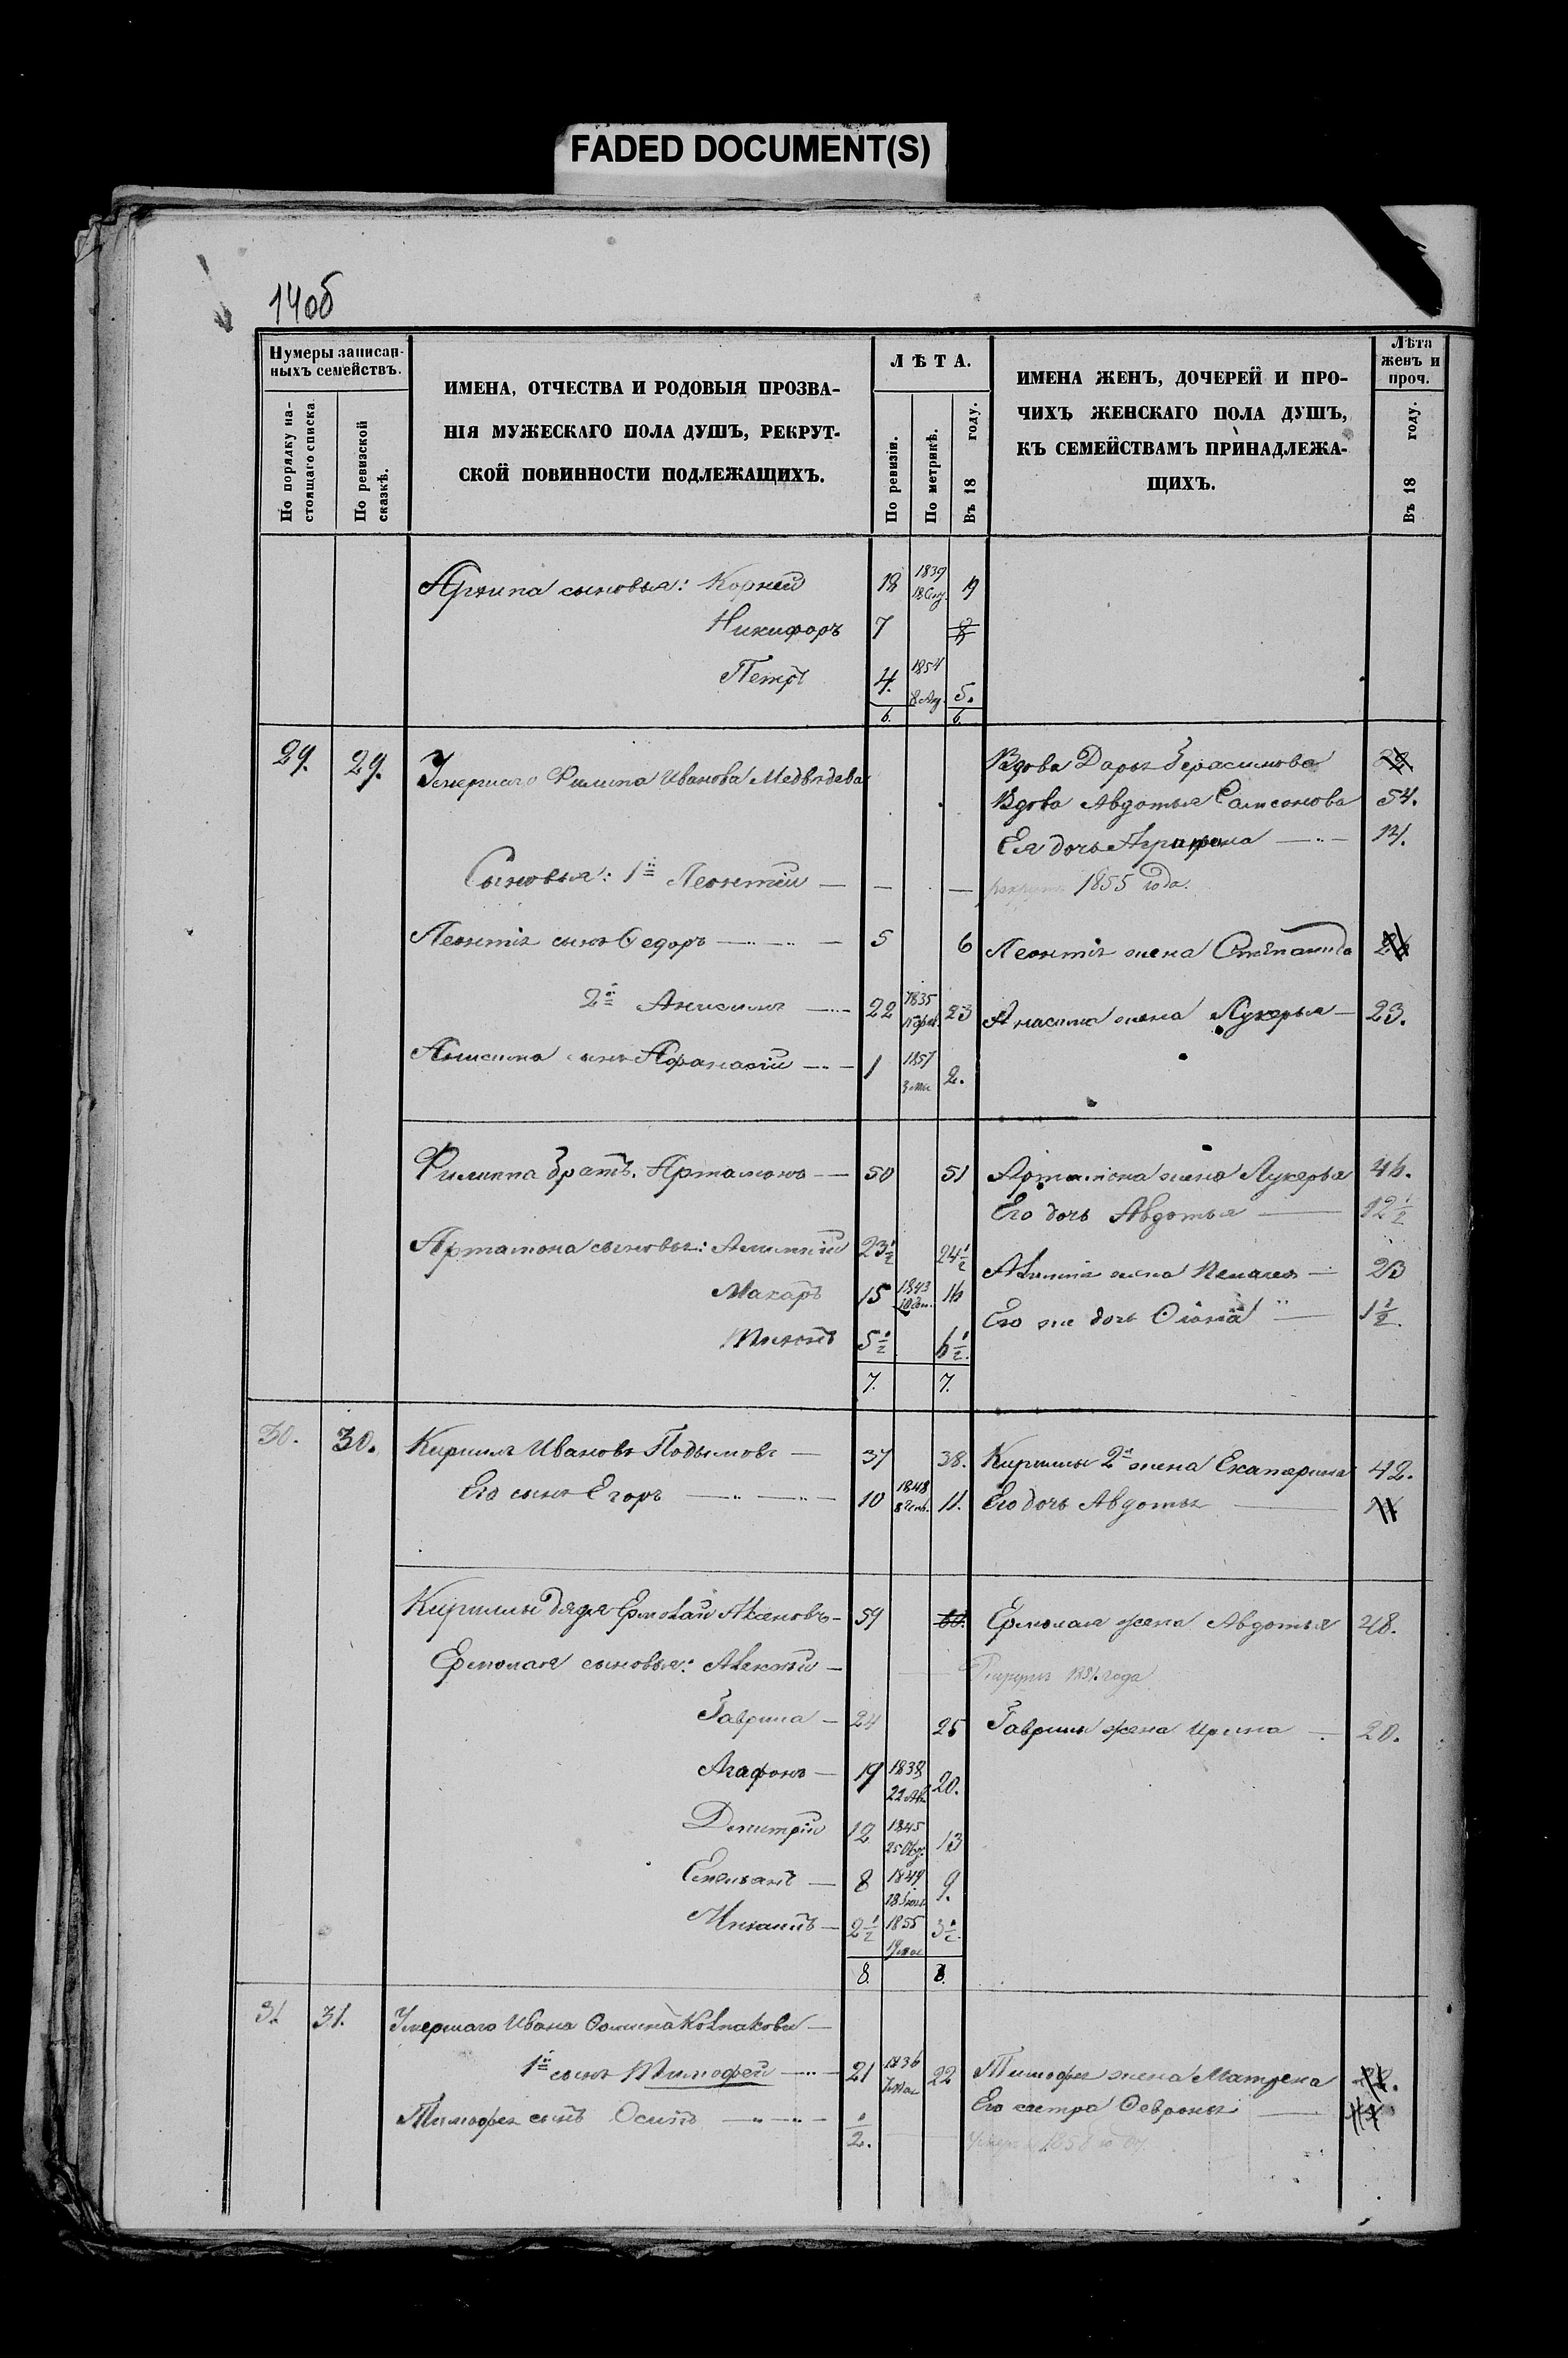 FADED DOCUMENT(S)
14об
Нумеры записан-
ныхъ семействъ.
По порядку на-
стоящаго списка
По ревизской
сказкѣ.
ИМЕНА, ОТЧЕСТВА И РОДОВЫЯ ПРОЗВА-
НІЯ МУЖЕСКАГО ПОЛА ДУШЪ, РЕКРУТ-
СКОЙ ПОВИННОСТИ ПОДЛЕЖАЩИХЪ.
ЛѢТА.
По ревизіи.
По метрикѣ.
Въ 18 году.
ИМЕНА ЖЕНЪ, ДОЧЕРЕЙ И ПРО-
ЧИХЪ ЖЕНСКАГО ПОЛА ДУШЪ,
КЪ СЕМЕЙСТВАМЪ ПРИНАДЛЕЖА-
ЩИХЪ.
Лѣта
женъ и
проч.
Въ 18 году.
Архипа сыновья: Корней 18 1839 19
Никифоръ 7 8
Петръ 4. 1854 5.
6. 6.
29. 29. Умершаго Филипа Иванова Медвѣдева
Вдова Дарья Герасимова
Вдова Авдотья Самсонова 54.
Ея дочь Аграфена 14.
Сыновья: 1й Леонтій — — — 1855 года.
Леонтія сынъ Ѳедоръ — 5 6 Леонтія жена Степанида
2й Анисимъ — 22 1835 23 Анисима жена Лукерья — 23.
Анисима сынъ Афанасій — 1 1857 2.
Филиппа братъ. Артамонъ — 50 51 Артамона жена Лукерья 46.
Его дочь Авдотья — 12½
Артамона сыновья: 23½ 24½
жена Пелагея — 23
Макаръ 15 1843 16
Его же дочь — 1½.
Тихонъ 5½ 6½.
7. 7.
30. 30. Кирилъ Ивановъ Подымовъ — 37 38. Кирилы 2я жена Екатерина 42.
Его сынъ Егоръ — 10 1848 11. Его дочь Авдотья —
Кирилы дядя Ермолай — 59 60. Ермолая жена Авдотья 48.
Ермолая сыновья: Алексѣй — года
Гаврила — 24 25 Гаврилы жена Ирина — 20.
Агафонъ — 19 1838 20.
Дмитрій 12 1845 13
Емельянъ — 8 1849 9.
Михаилъ — 2½ 1855 3½.
8. 8.
31. 31. Умершаго Ивана Ѳомина Колпакова —
1й сынъ Тимофей — 21 1836 22 Тимофея жена Матрена 22.
Его сестра Февронья —
Тимофея сынъ Осипъ — ½. 1858 году.